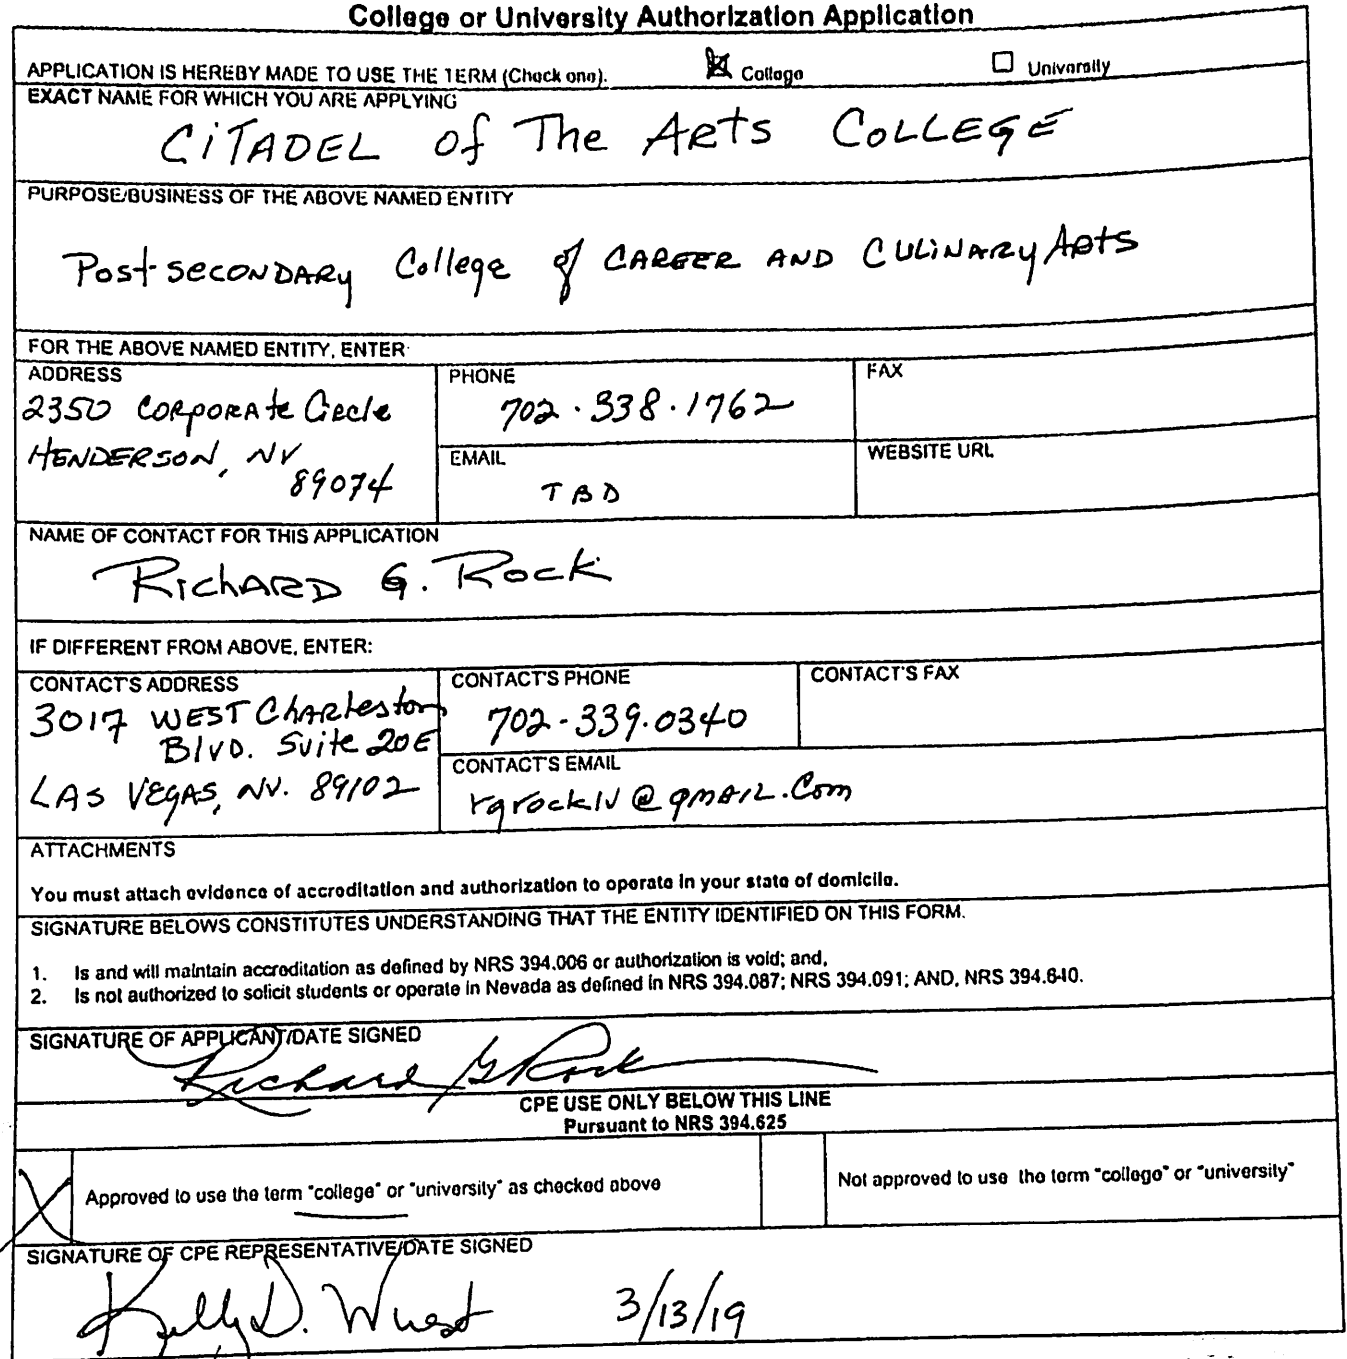 College or University Authorization Application
APPLICATION IS HEREBY MADE TO USE THE TERM (Check one). College University
EXACT NAME FOR WHICH YOU ARE APPLYING
CITADEL of The ARTS COLLEGE
PURPOSE/BUSINESS OF THE ABOVE NAMED ENTITY
Post-SECONDARY College of CAREER AND CULINARY ARTS
FOR THE ABOVE NAMED ENTITY, ENTER:
ADDRESS
2350 CORPORATE Circle
HENDERSON, NV
89074
PHONE
702.338.1762
FAX
EMAIL
TBD
WEBSITE URL
NAME OF CONTACT FOR THIS APPLICATION
RIChARD G. ROCK
IF DIFFERENT FROM ABOVE, ENTER:
CONTACT'S ADDRESS
3017 WEST ChARleston
BlVD. Suite 20E
LAS VEGAS, NV. 89102
CONTACT'S PHONE
702-339.0340
CONTACT'S FAX
CONTACT'S EMAIL
rgrocklv@gmAIL.Com
ATTACHMENTS
You must attach evidence of accreditation and authorization to operate in your state of domicile.
SIGNATURE BELOWS CONSTITUTES UNDERSTANDING THAT THE ENTITY IDENTIFIED ON THIS FORM.
1. Is and will maintain accreditation as defined by NRS 394.006 or authorization is void; and,
2. Is not authorized to solicit students or operate in Nevada as defined in NRS 394.087; NRS 394.091; AND, NRS 394.640.
SIGNATURE OF APPLICANT/DATE SIGNED
Richard G Rock
CPE USE ONLY BELOW THIS LINE
Pursuant to NRS 394.625
X Approved to use the term "college" or "university" as checked above
Not approved to use the term "college" or "university"
SIGNATURE OF CPE REPRESENTATIVE/DATE SIGNED
Kelly D. Wuest 3/13/19